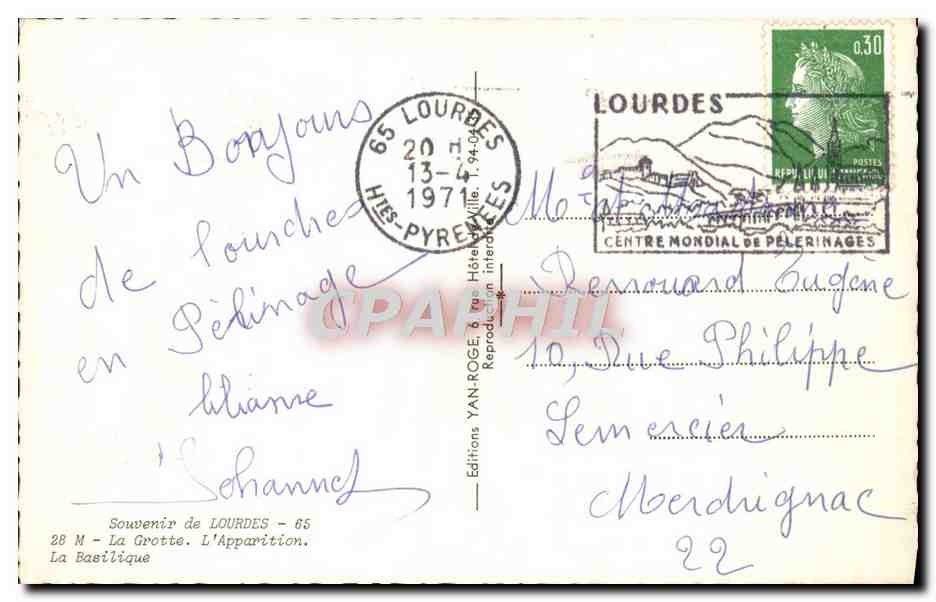 Un Bonjours
de lourdes
en Pélinage
liliane
Johannes
Souvenir de LOURDES - 65
28 M - La Grotte. L'Apparition.
La Basilique
65 LOURDES
20 H
13-4
1971
Htes-PYRENEES
Editions YAN-ROGE, 6, rue Hôtel de Ville. T. 94-04
Reproduction interdite
CPAPHIL
LOURDES
CENTRE MONDIAL DE PÈLERINAGES
0,30
POSTES
M
Renouard Eugène
10, Rue Philippe
Lemercier
Merdrignac
22